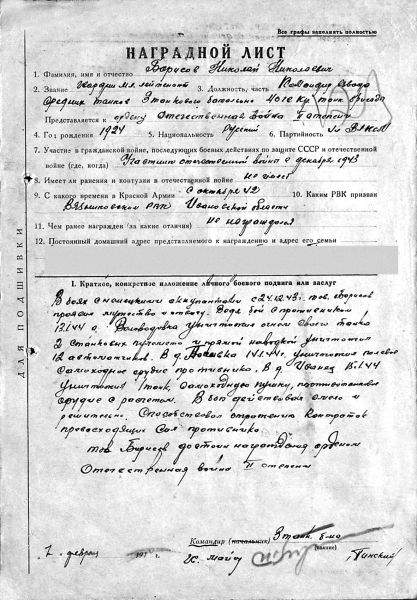 Все графы заполнять полностью
НАГРАДНОЙ ЛИСТ
1. Фамилия, имя и отчество Борисов Николай Николаевич
2. Звание Гвардии мл. лейтенант 3. Должность, часть Командир взвода
средних танков 3 танкового батальона бригада
Представляется к ордену Отечественная война II степени
4. Год рождения 1924 5. Национальность Русский 6. Партийность чл ВЛКСМ
7. Участие в гражданской войне, последующих боевых действиях по защите СССР и отечественной
войне (где, когда) Участник отечественной войны с декабря 1943
8. Имеет ли ранения и контузии в отечественной войне не имеет
9. С какого времени в Красной Армии с октября 42 10. Каким РВК призван
РВК Ивановской области
11. Чем ранее награжден (за какие отличия) не награждался
12. Постоянный домашний адрес представляемого к награждению и адрес его семьи
ДЛЯ ПОДШИВКИ
I. Краткое, конкретное изложение личного боевого подвига или заслуг
В боях с немецкими оккупантами с 24.12.43 г. тов. Борисов
проявил мужество и отвагу. Ведя бой с противником
13.1.44 д. уничтожил огнем своего танка
2 станковых пулемета и прямой наводкой уничтожил
12 автоматчиков. В д. 14.1.44 г. уничтожил полевое
самоходное орудие противника. В д. Иванец 15.1.44
уничтожил танк, самоходную пушку, противотанковое
орудие с расчетом. В бою действовал смело и
решительно. Способствовал отражению контратак
превосходящих сил противника.
тов Борисов достоин награждения орденом
Отечественная война II степени
Командир (начальник) 3 танк. б-на
(звание)
7. февраля 194 г. гв. майор